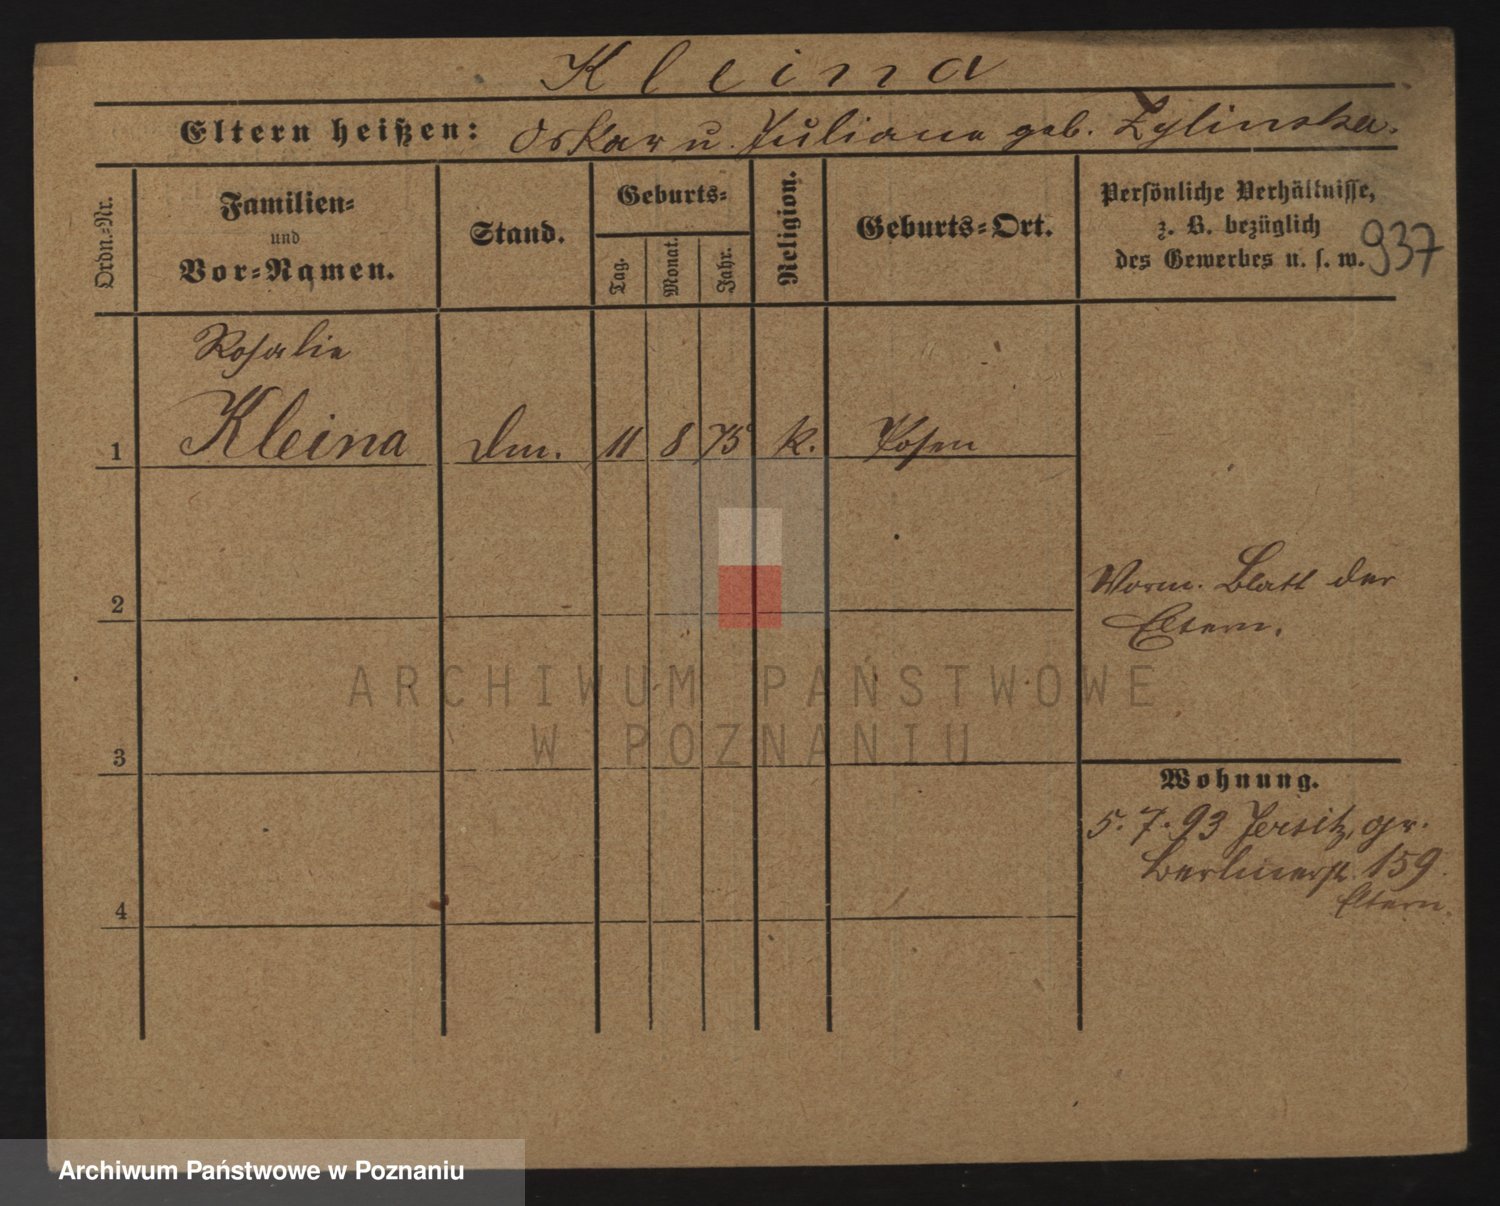 Kleina
Eltern heißen: Oskar u. Juliana geb. Zylinska.
Ordn.-Nr.
Familien-
und
Vor-Namen.
Stand.
Geburts-
Tag.
Monat.
Jahr.
Religion.
Geburts-Ort.
Persönliche Verhältnisse,
z. B. bezüglich
des Gewerbes u. s. w.
937
Rosalie
1 Kleina 11 8 75 k. Posen
2
Vorm. Blatt der
Eltern.
3
Wohnung.
5. 7. 93 Jersitz, gr.
Berlinerst. 159.
Eltern.
4
ARCHIWUM PAŃSTWOWE
W POZNANIU
Archiwum Państwowe w Poznaniu